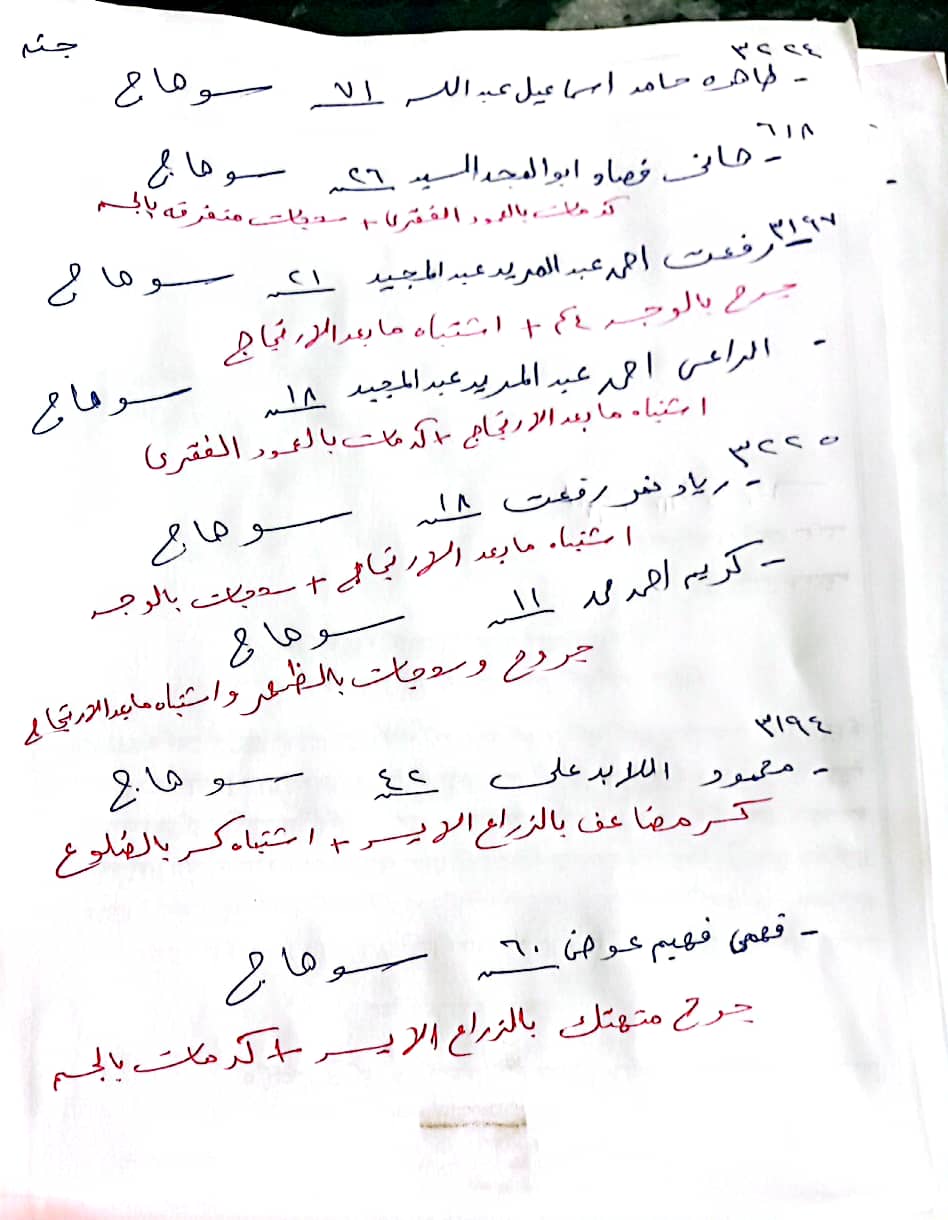 جثه
٣٢٢٤
- طاهره حامد اسماعيل عبدالله ٧١ سنه سوهاج
٦١٨
- هانى ابوالمجد السيد ٢٦ سنه سوهاج
كدمات بالعمود الفقرى + سحجات متفرقه بالجسم
٣١٩٧
- رفعت احمد عبدالمريد عبدالمجيد ٢١ سنه سوهاج
جرح بالوجه + اشتباه مابعد الارتجاج
- الراعى احمد عبدالمريد عبدالمجيد ١٨ سنه سوهاج
اشتباه مابعد الارتجاج + كدمات بالعمود الفقرى
٣٢٢٥
- زياد رفعت ١٨ سنه سوهاج
اشتباه مابعد الارتجاج + سحجات بالوجه
- كريم احمد محمد ١١ سنه سوهاج
جروح وسحجات بالظهر واشتباه مابعد الارتجاج
٣١٩٤
- محمود على ٤٢ سنه سوهاج
كسر مضاعف بالزراع الايسر + اشتباه كسر بالضلوع
- فهمى فهيم عوض ٦٠ سنه سوهاج
جرح متهتك بالزراع الايسر + كدمات بالجسم